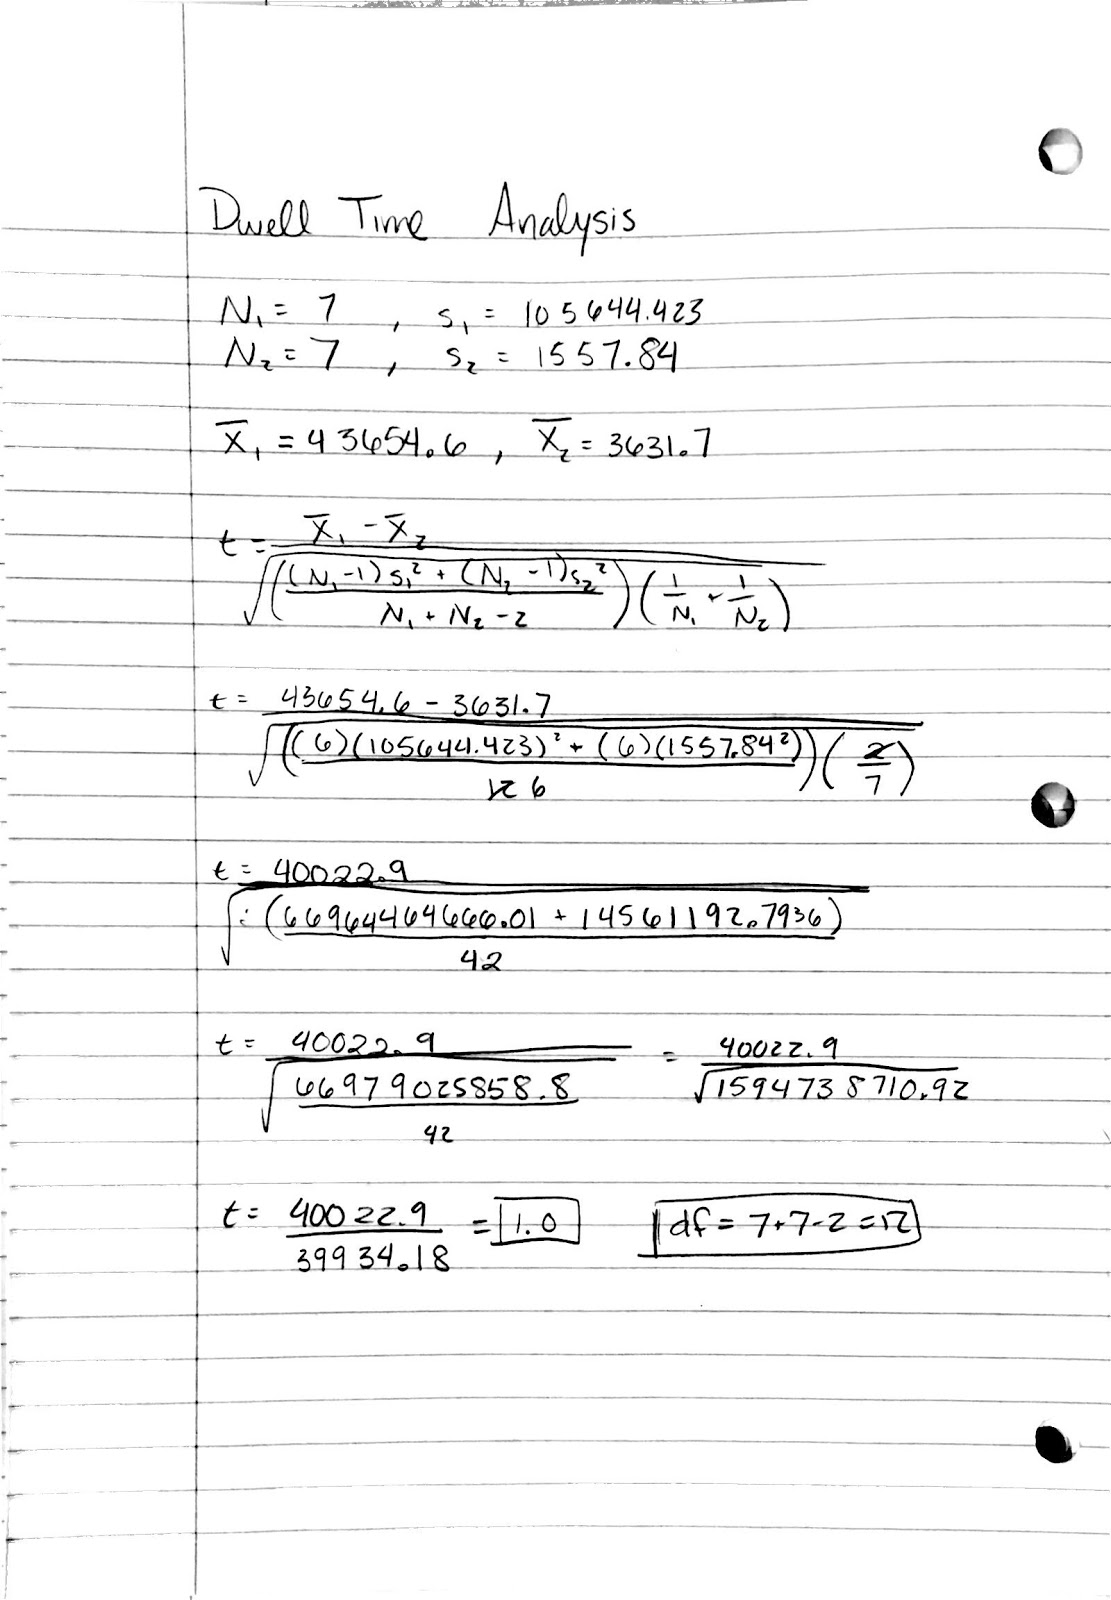 Dwell Time Analysis
N₁ = 7 , s₁ = 105644.423
N₂ = 7 , s₂ = 1557.84
X̄₁ = 43654.6 , X̄₂ = 3631.7
t = X̄₁ - X̄₂
√(((N₁-1)s₁² + (N₂-1)s₂²)
N₁ + N₂ - 2) (1/N₁ + 1/N₂)
t = 43654.6 - 3631.7
√(((6)(105644.423)² + (6)(1557.84²))) (2/7)
12 6
t = 40022.9
√(66964464666.01 + 14561192.7936)
42
t = 40022.9 = 40022.9
√66979025858.8 √1594738710.92
42
t = 40022.9 = 1.0 df = 7+7-2 = 12
39934.18